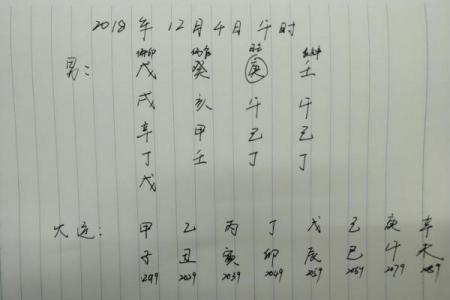 2018年12月4日午时
偏印 伤官 日主
男: 戊 癸 庚 壬
戌 亥 午 午
辛 甲 己 己
丁 壬 丁 丁
戊
大运: 甲 乙 丙 丁 戊 己 庚 辛
子 丑 寅 卯 辰 巳 午 未
2019 2029 2039 2049 2059 2069 2079 2089